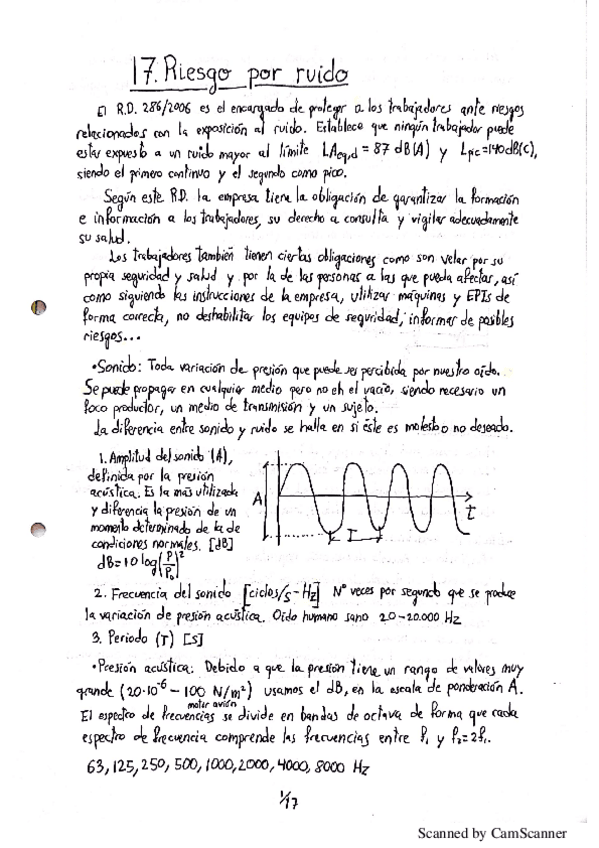 17. Riesgo por ruido
El R.D. 286/2006 es el encargado de proteger a los trabajadores ante riesgos
relacionados con la exposición al ruido. Establece que ningún trabajador puede
estar expuesto a un ruido mayor al límite LAeq,d = 87 dB(A) y Lpic=140dB(C),
siendo el primero continuo y el segundo como pico.
Según este R.D. la empresa tiene la obligación de garantizar la formación
e información a los trabajadores, su derecho a consulta y vigilar adecuadamente
su salud.
Los trabajadores también tienen ciertas obligaciones como son velar por su
propia seguridad y salud y por la de las personas a las que pueda afectar, así
como siguiendo las instrucciones de la empresa, utilizar máquinas y EPIs de
forma correcta, no deshabilitar los equipos de seguridad, informar de posibles
riesgos...
•Sonido: Toda variación de presión que puede ser percibida por nuestro oído.
Se puede propagar en cualquier medio pero no en el vacío, siendo necesario un
foco productor, un medio de transmisión y un sujeto.
La diferencia entre sonido y ruido se halla en si éste es molesto o no deseado.
1. Amplitud del sonido (A),
definida por la presión
acústica. Es la más utilizada
y diferencia la presión de un
momento determinado de la de
condiciones normales. [dB]
dB=10 log(P/P₀)²
A
T
t
2. Frecuencia del sonido [ciclos/s - Hz] Nº veces por segundo que se produce
la variación de presión acústica. Oído humano sano 20-20.000 Hz
3. Periodo (T) [s]
•Presión acústica: Debido a que la presión tiene un rango de valores muy
grande (20·10⁻⁶ - 100 N/m²) usamos el dB, en la escala de ponderación A.
motor avión
El espectro de frecuencias se divide en bandas de octava de forma que cada
espectro de frecuencia comprende las frecuencias entre f₁ y f₂=2f₁.
63, 125, 250, 500, 1000, 2000, 4000, 8000 Hz
1/17
Scanned by CamScanner